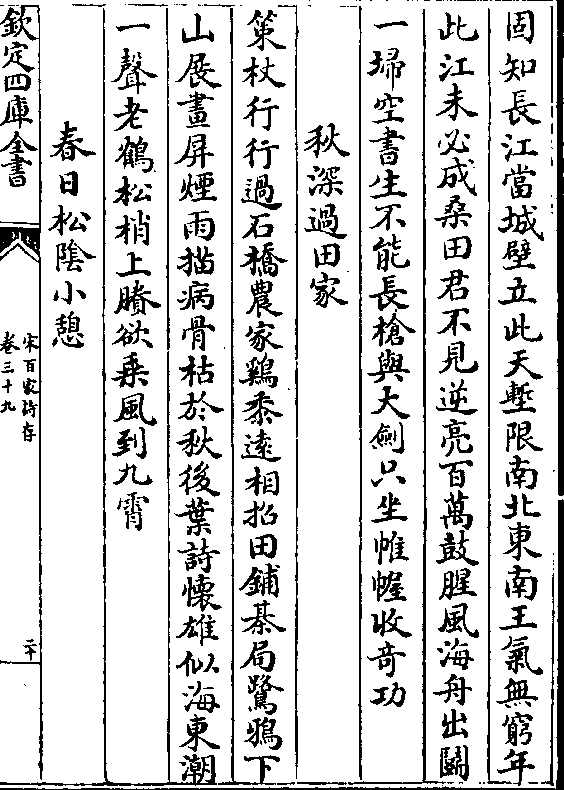 固知長江當城壁立此天塹限南北東南王氣無窮年
此江未必成桑田君不見逆亮百萬鼓腥風海舟出鬭
一埽空書生不能長槍與大劍只坐帷幄收竒功
秋深過田家
策杖行行過石橋農家鷄黍遠相招田鋪棊局驚鴉下
山展畫屏煙雨描病骨枯於秋後葉詩懷雄似海東潮
一聲老鶴松梢上賸欲乗風到九霄
春日松陰小憩
欽定四庫全書
宋百家詩存
卷三十九
二十